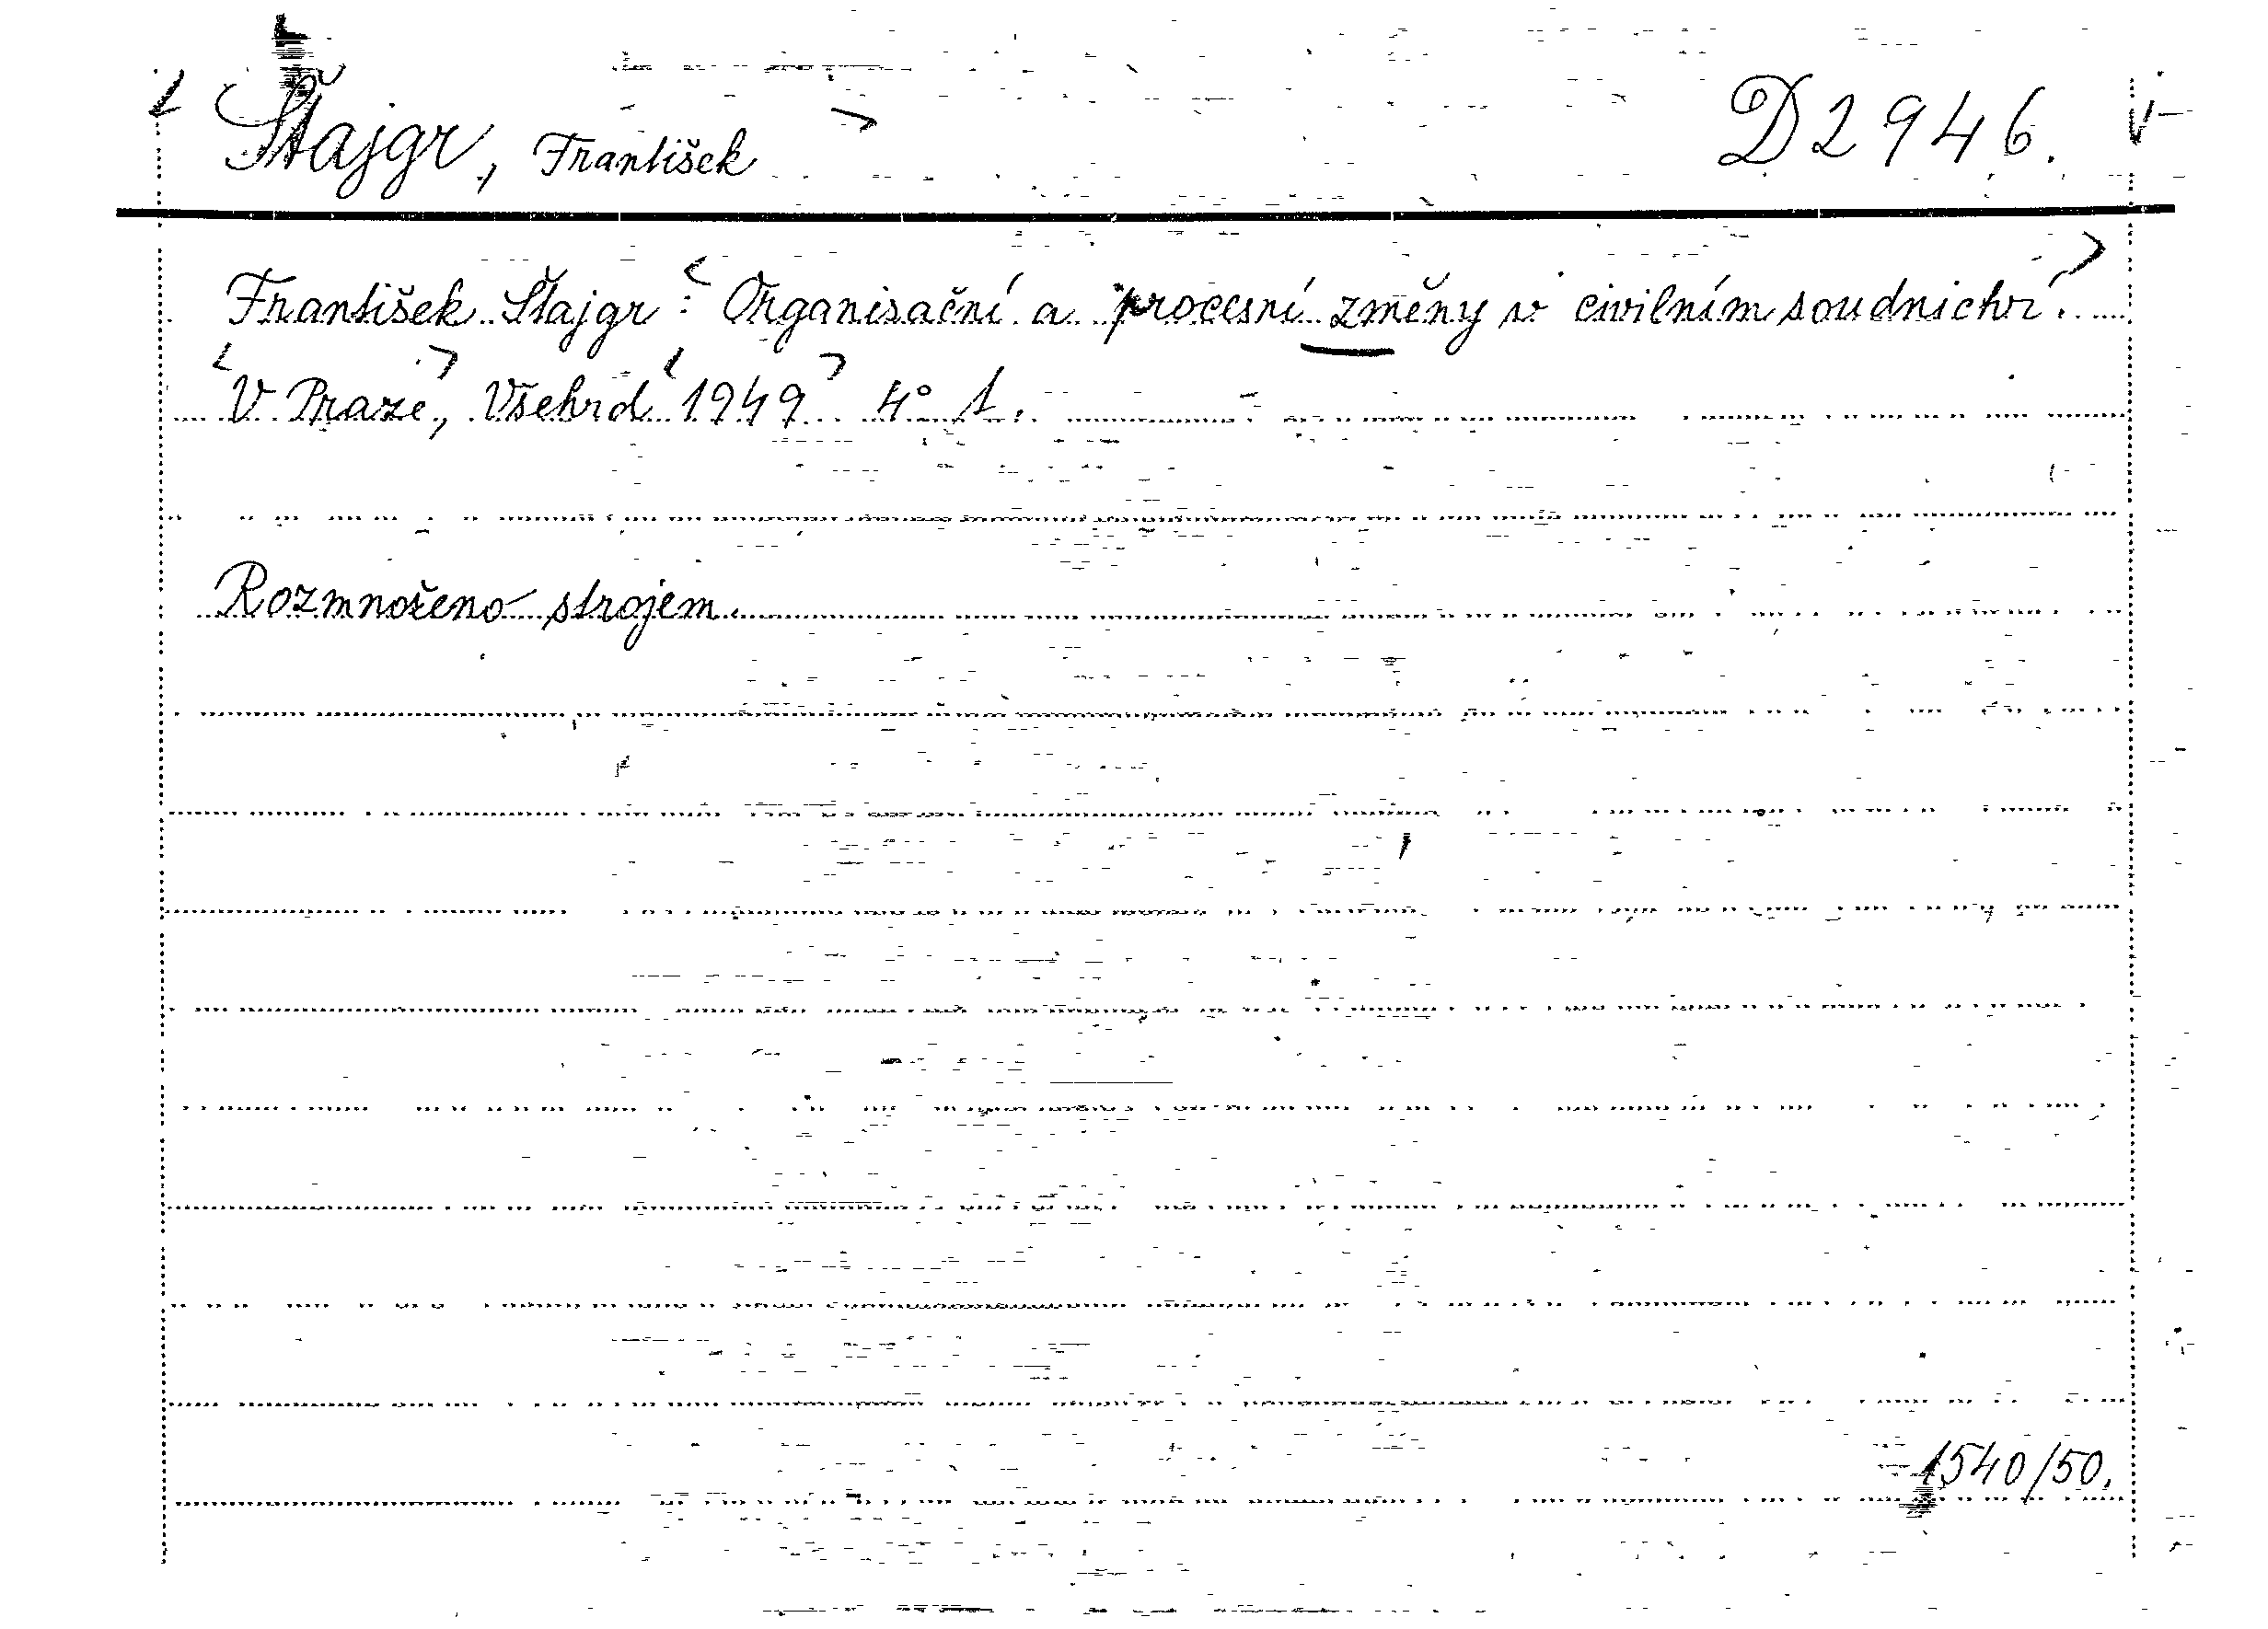 Štajgr, František D 2946.
František Štajgr: Organisační a procesní změny v civilním soudnictví.
V Praze, Všehrd 1949 4° 1.
Rozmnoženo strojem.
1540/50.